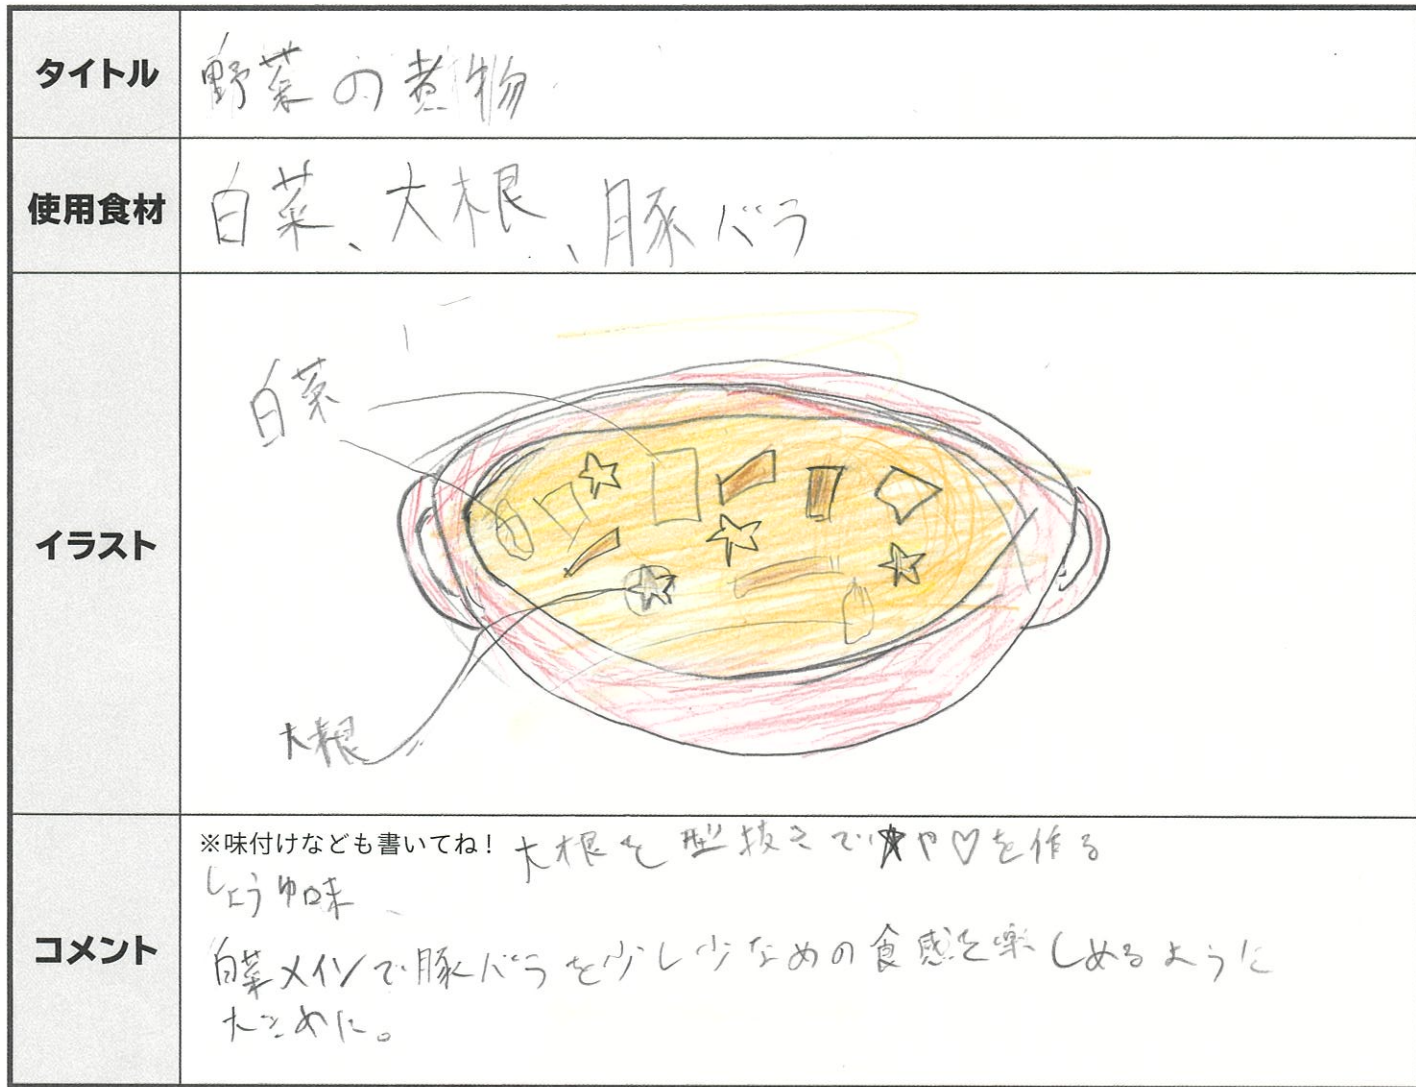 タイトル
野菜の煮物
使用食材
白菜、大根、豚バラ
イラスト
白菜
大根
コメント
※味付けなども書いてね! 大根を型抜きで★や♡を作る
しょうゆ味、
白菜メインで豚バラを少し少なめの食感を楽しめるように